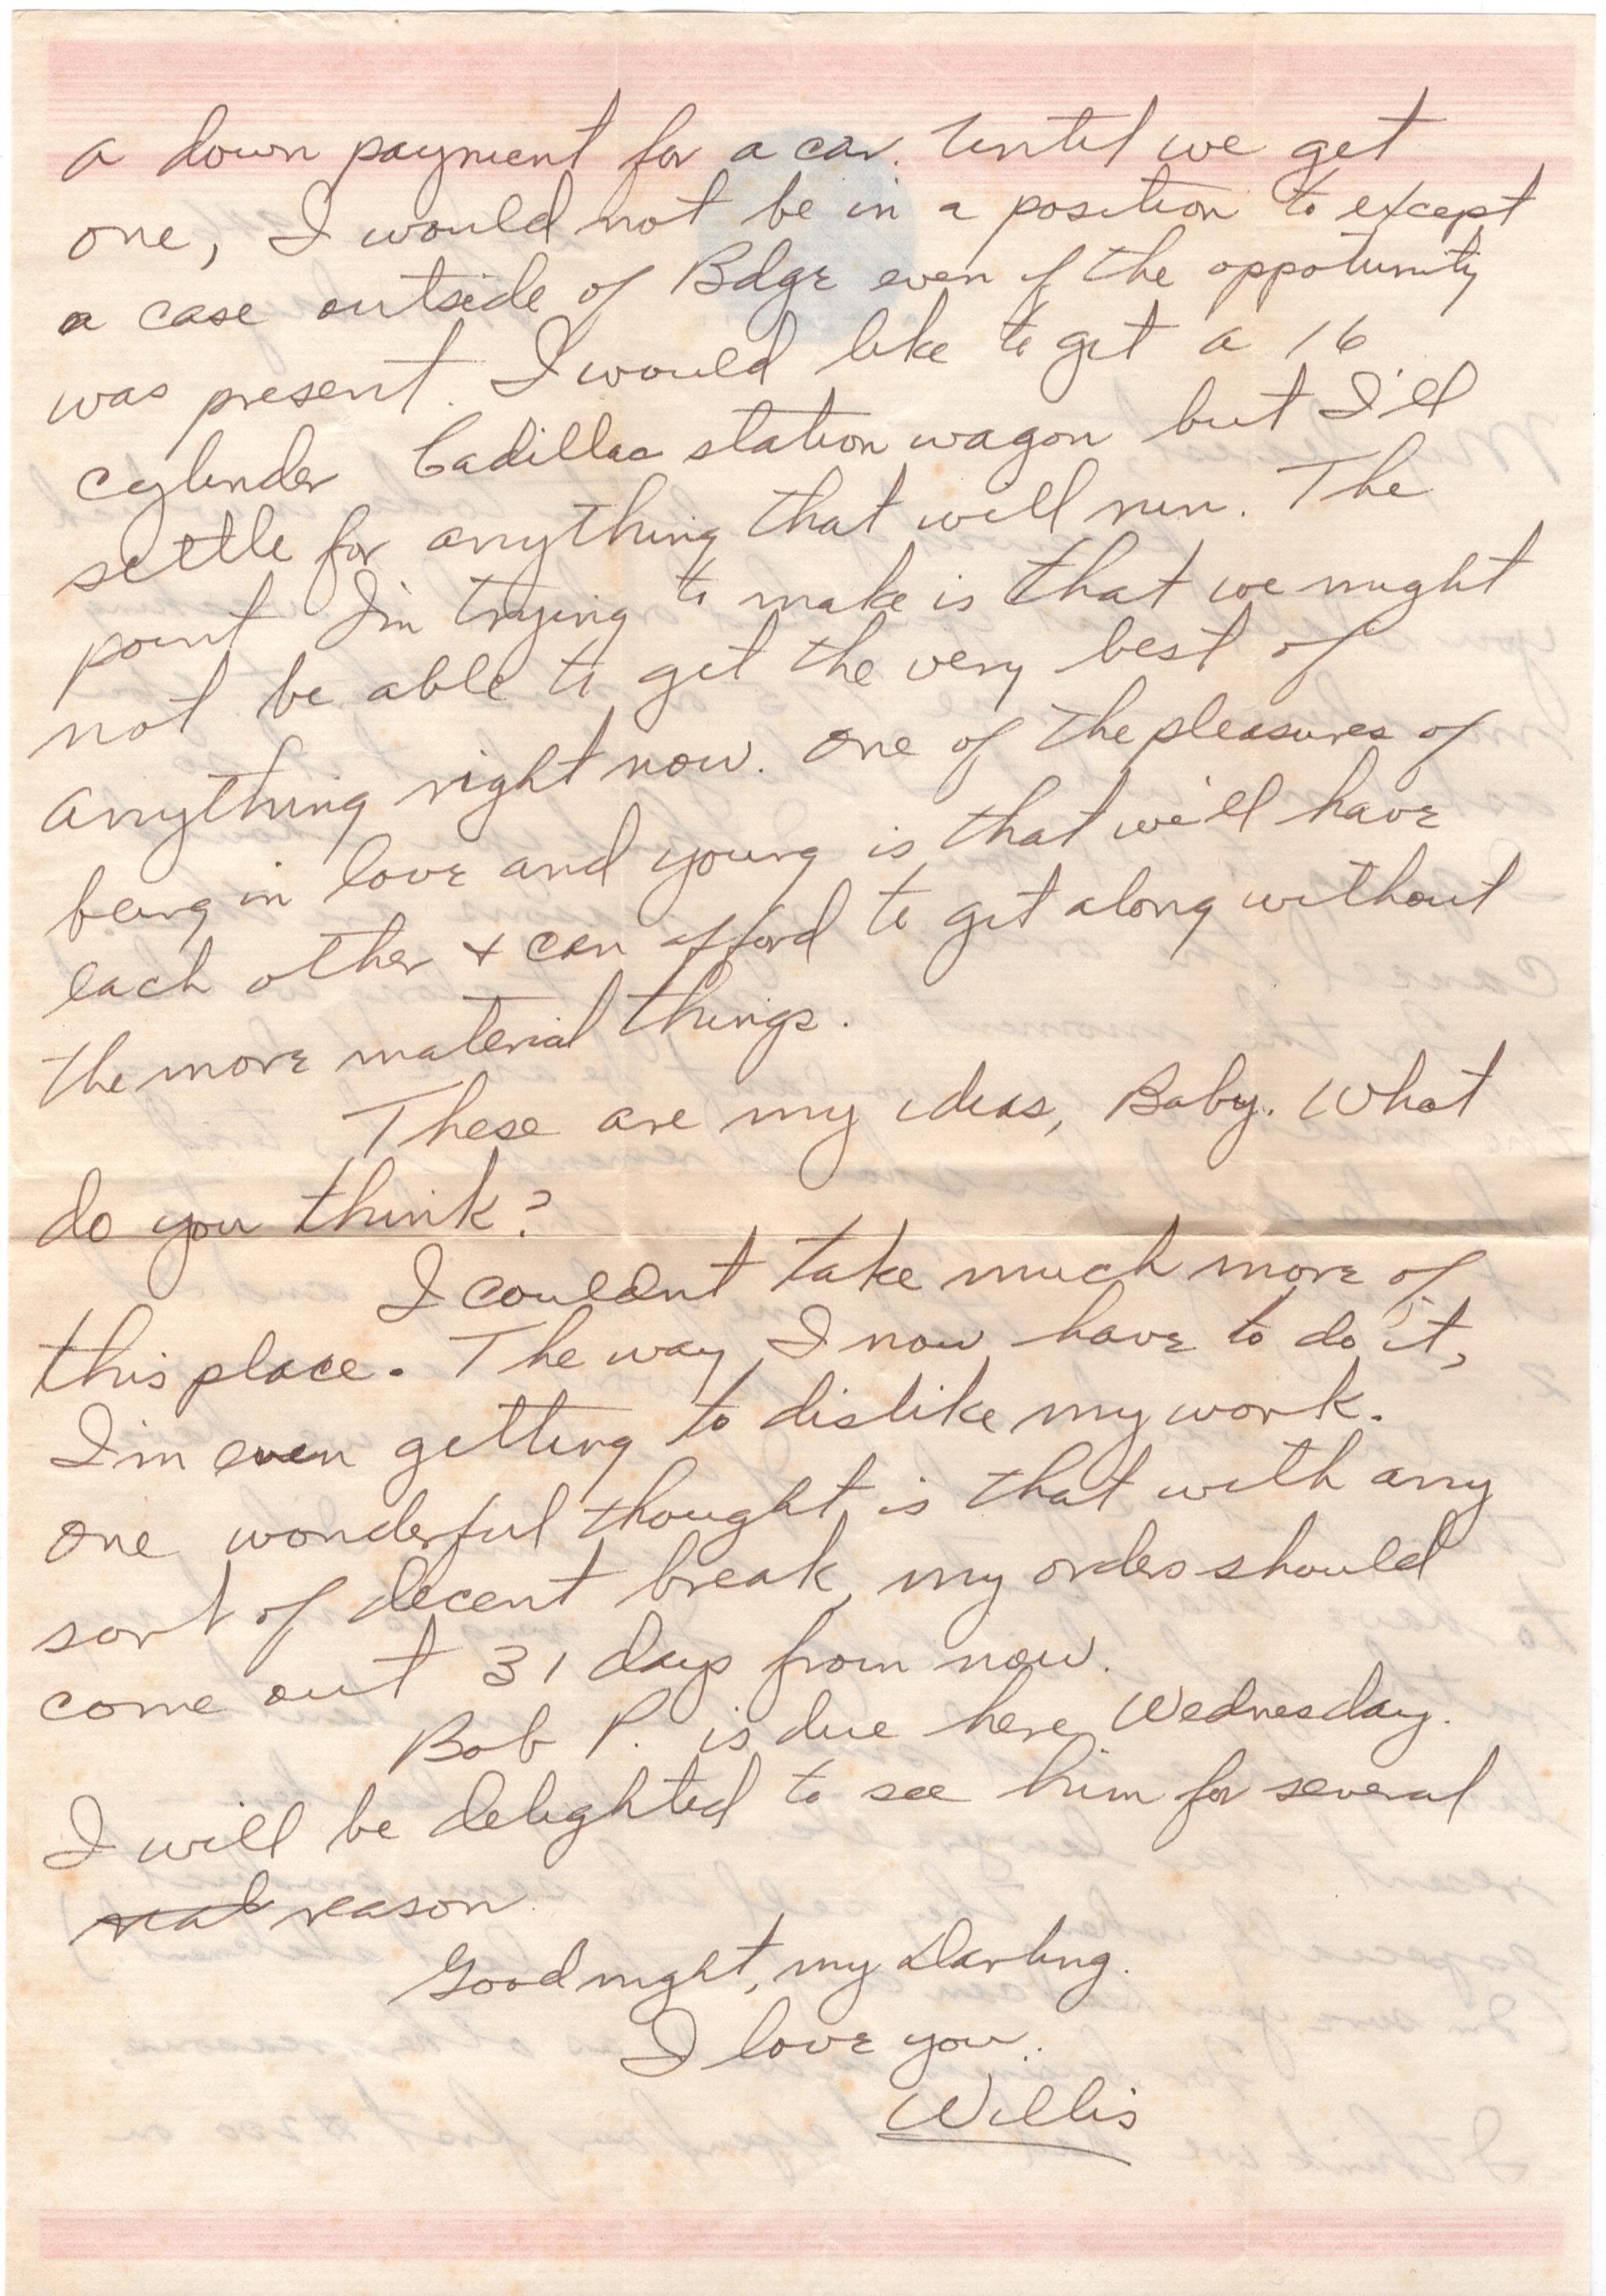 a down payment for a car. Until we get
one, I would not be in a position to except
a case outside of Bdge even if the oppotunity
was present. I would like to get a 16
cylinder Cadillac station wagon but I'll
settle for anything that will run. The
point I'm trying to make is that we might
not be able to get the very best of
anything right now. One of the pleasures of
being in love and young is that we'll have
each other + can afford to get along without
the more material things.
These are my ideas, Baby. What
do you think?
I couldnt take much more of
this place. The way I now have to do it,
I'm even getting to dislike my work.
One wonderful thought is that with any
sort of decent break, my orders should
come out 31 days from now.
Bob P. is due here Wednesday.
I will be delighted to see him for several
reason.
Goodnight, my Darling.
I love you.
Willis